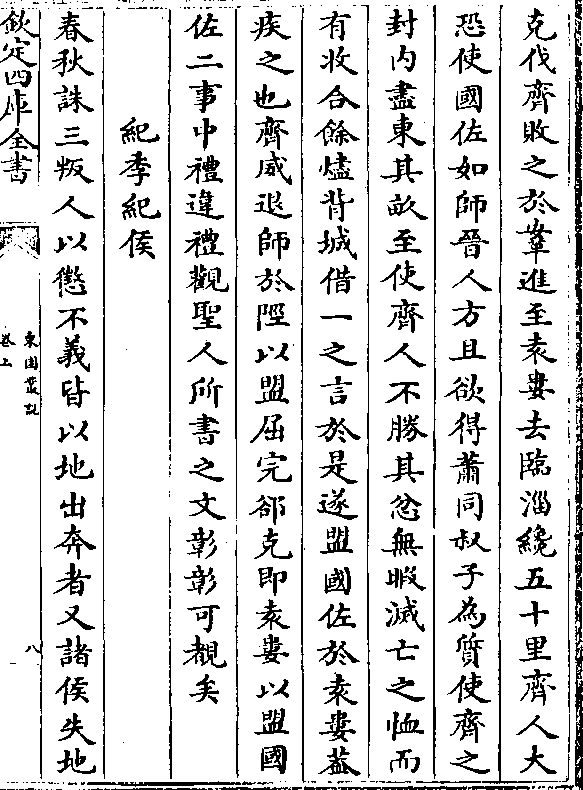 克伐齊敗之於鞌進至袁婁去臨淄纔五十里齊人大
恐使國佐如師晉人方且欲得蕭同叔子為質使齊之
封内盡東其畝至使齊人不勝其忿無暇滅亡之恤而
有收合餘燼背城借一之言於是遂盟國佐於袁婁葢
疾之也齊威退師於陘以盟屈完郤克即袁婁以盟國
佐二事中禮違禮觀聖人所書之文彰彰可覩矣
紀季紀侯
春秋誅三叛人以懲不義皆以地出奔者又諸侯失地
欽定四庫全書
東園叢說
卷上
八